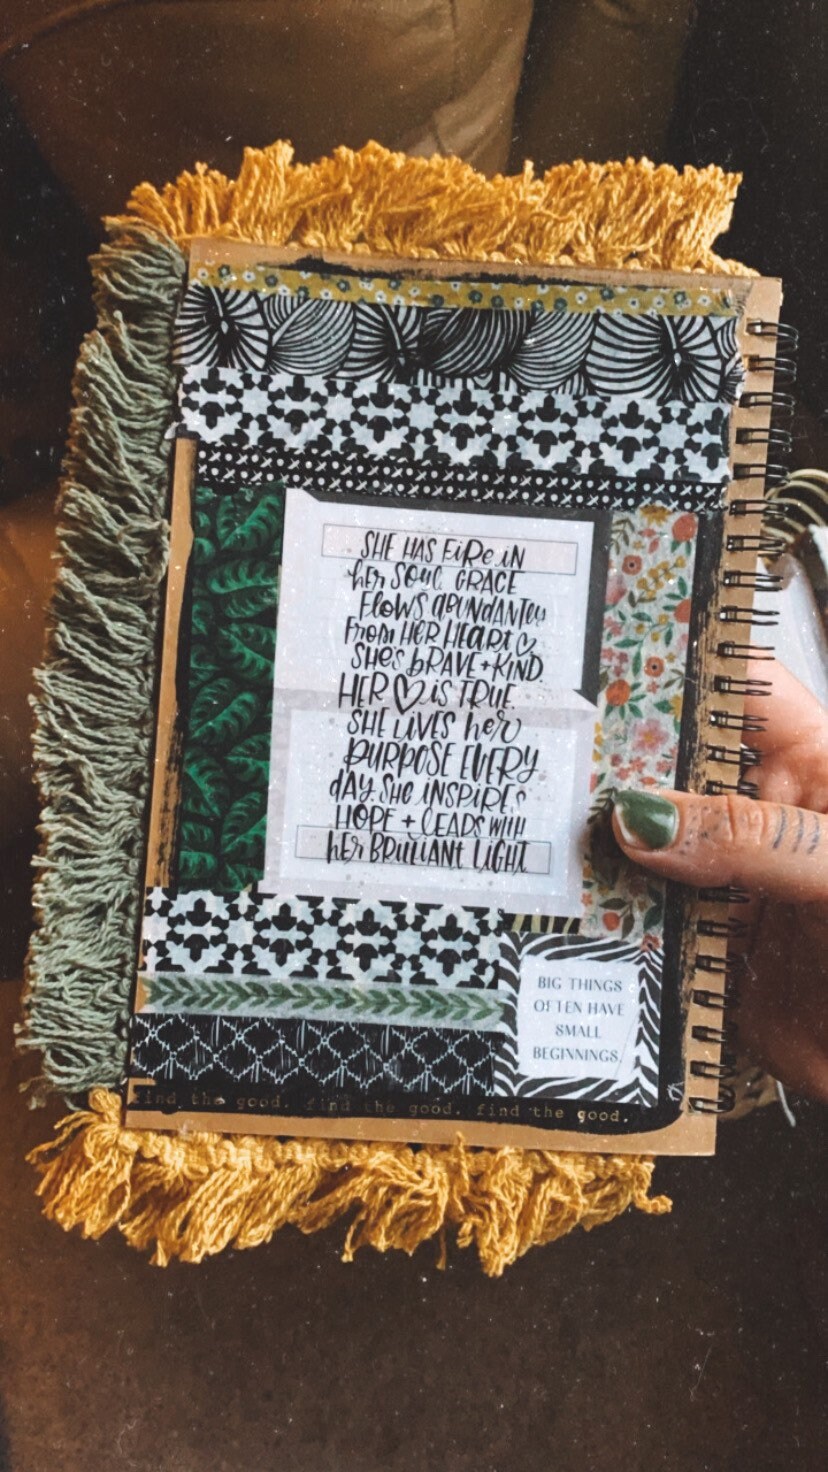 SHE HAS FiRe iN
her SOUL GRACE
FLOWS ABUNDANTLY
From HER HEART ♡
SHE'S bRAVE + KIND.
HER ♡ is TRUE.
SHE LIVES her
PURPOSE EVERY
dAY. She iNSPIRES
HOPE + LEADS WITH
her BRILLIANt LIGHT.
BIG THINGS
OFTEN HAVE
SMALL
BEGINNINGS.
find the good. find the good. find the good.